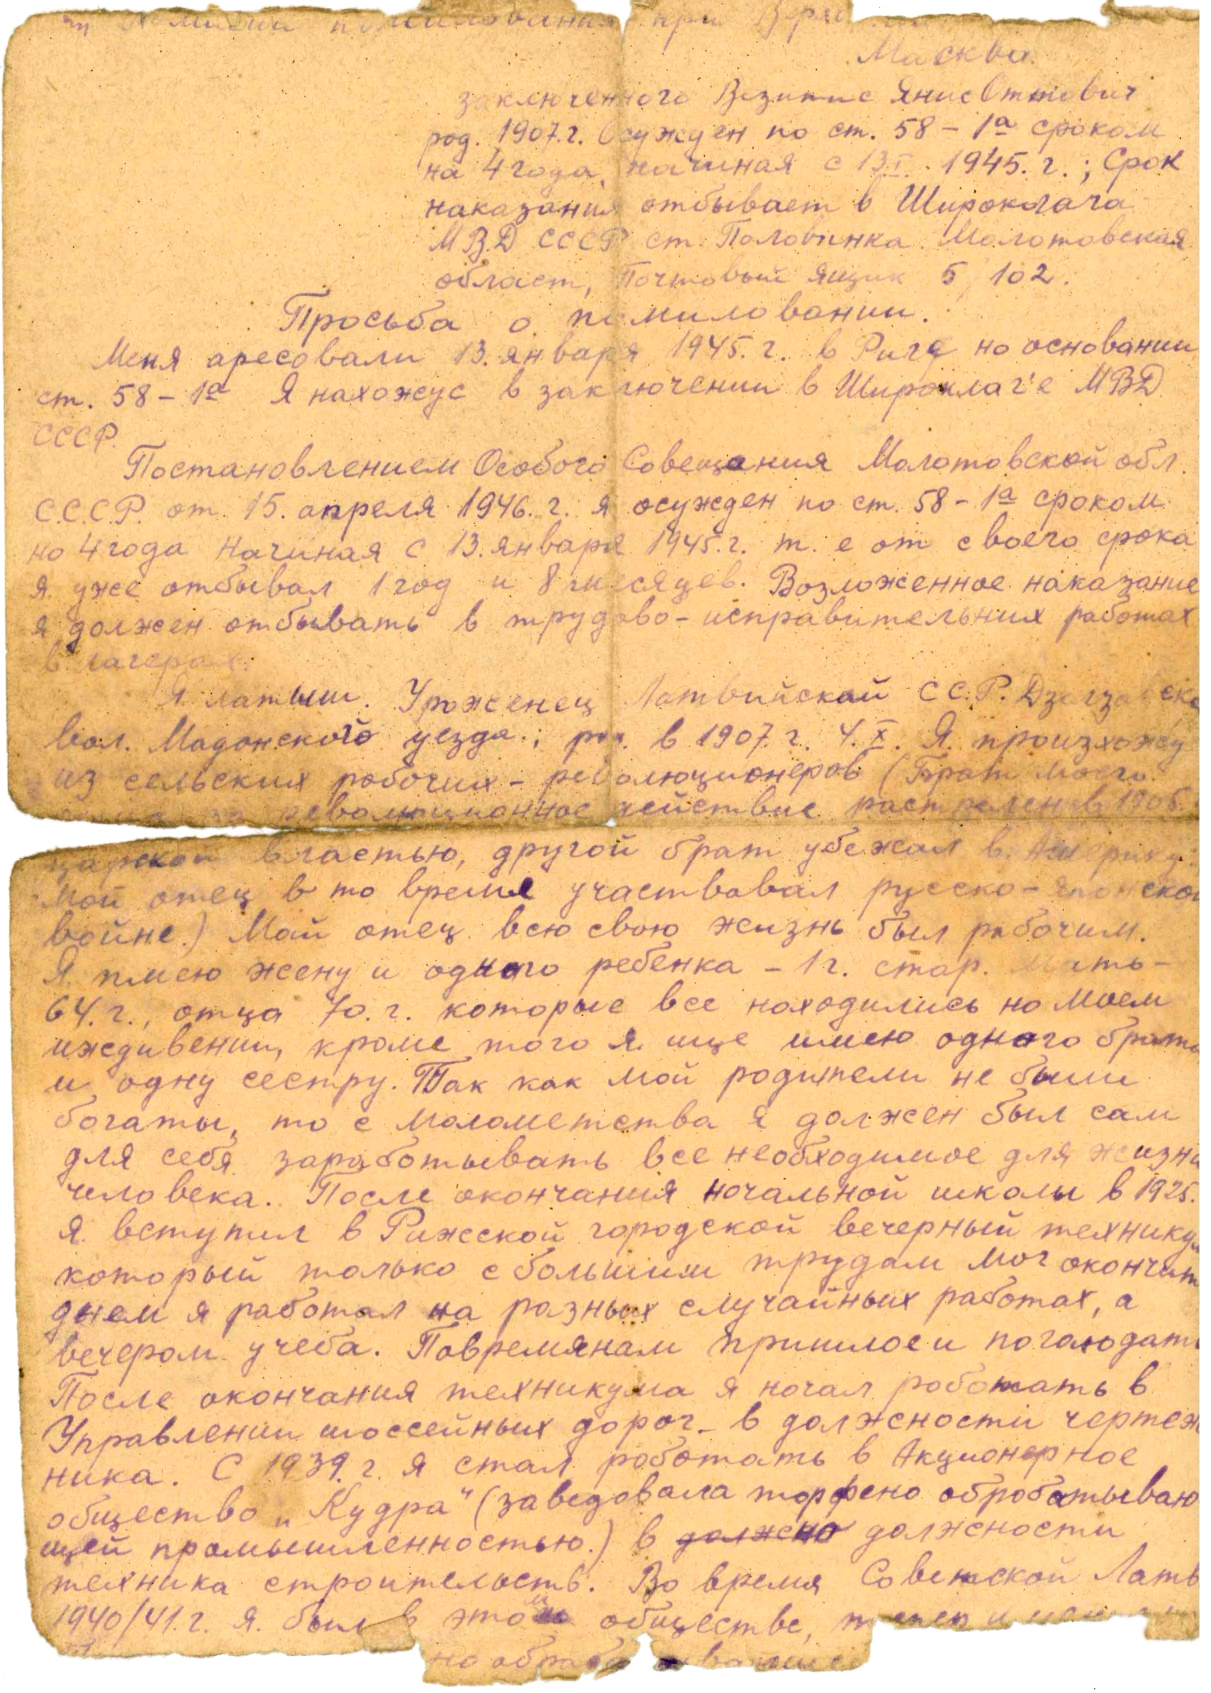 помилования при Верх
Масква.
заключенного Везитис Янис Оттович
род. 1907.г. Осужден по ст. 58 – 1а сроком
на 4 года, начиная с 13.I. 1945. г. ; Срок
наказания отбывает в Широклага
МВД СССР ст. Половинка Молотовская
област, Почтовый ящик 5 102.
Просьба о помиловании.
Меня аресовали 13. января 1945. г. в Риге но основании
ст. 58 – 1а Я нахожус в заключении в Широклаг'е МВД
СССР.
Постановлением Особого Совещания Молотовской обл.
С.С.С.Р. от. 15. апреля 1946. г. я осужден по ст. 58 – 1а сроком
но 4 года начиная с 13. января 1945. г. т. е от своего срока
я уже отбывал 1 год и 8 месяцев. Возложенное наказание
я должен отбывать в трудово – исправительних работах
в лагерах.
Я латыш. Уроженец Латвийской С.С.Р.
вол. Мадонского уезда ; род. в 1907. г. 4. X. Я. произхожу
из сельских рабочих – революционеров (Брат моего
за революционное действие растрелен в 1905.
царской властью, другой брат убежал в. Америку.
Мой отец в то время участвовал русско – японской
войне.) Мой отец всю свою жизнь был рабочим.
Я имею жену и одного ребенка – 1 г. стар. Мать –
64. г. , отца 70. г. которые все находились но моем
иждивении, кроме того я. ище имею одного брата
и одну сестру. Так как мой родители не были
богаты, то с малометства я должен был сам
для себя зарабoтывать все необходимое для жизни
человека. После окончания начальной школы в 1925.
я вступил в Рижской городской вечерный технику
который только с большим трудам мог окончит
днем я работал на разных случайных работах, а
вечером учеба. Повремянам пришлос и поголодать
После окончания техникума я начал роботать в
Управлении шоссейных дорог – в должности чертеж
ника. С 1939. г. я стал роботать в Акционерное
общество „Кудра“ (заведовала торфено обработываю
щей промышленностью.) в должно должности
техника строительств. Во время Советской Латв
1940/41. г. я. был в этом обществе,
но обраб